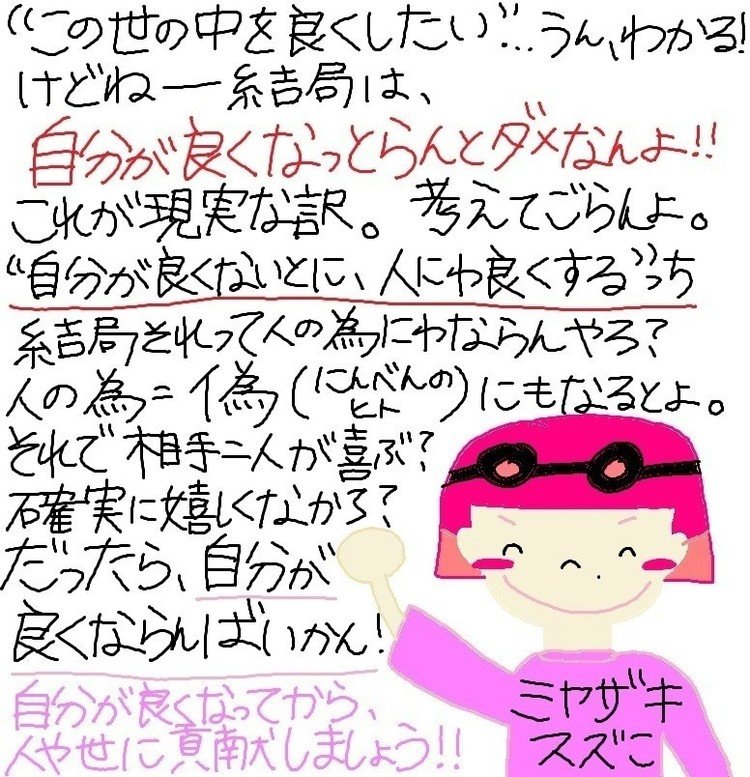 “この世の中を良くしたい”…うん、わかる!
けどね一結局は、
自分が良くなっとらんとダメなんよ!!
これが現実な訳。考えてごらんよ。
“自分が良くないとに、人にわ良くする”っち
結局それって人の為にわならんやろ?
人の為=偽(にんべんのヒト)にもなるとよ。
それで相手二人が喜ぶ?
確実に嬉しくなかろ?
だったら、自分が
良くならんばいかん!
自分が良くなってから、
人や世に貢献しましょう!!
ミヤザキ
スズこ